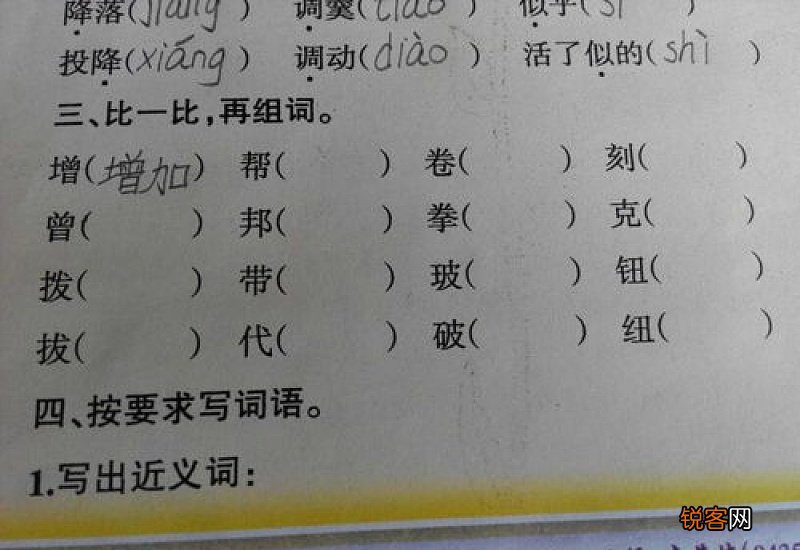 降落(jiàng) 调羹(tiáo) 似乎(sì)
投降(xiáng) 调动(diào) 活了似的(shì)
三、比一比,再组词。
增(增加) 帮( ) 卷( ) 刻( )
曾( ) 邦( ) 拳( ) 克( )
拨( ) 带( ) 玻( ) 钮( )
拔( ) 代( ) 破( ) 纽( )
四、按要求写词语。
1.写出近义词:
锐客网